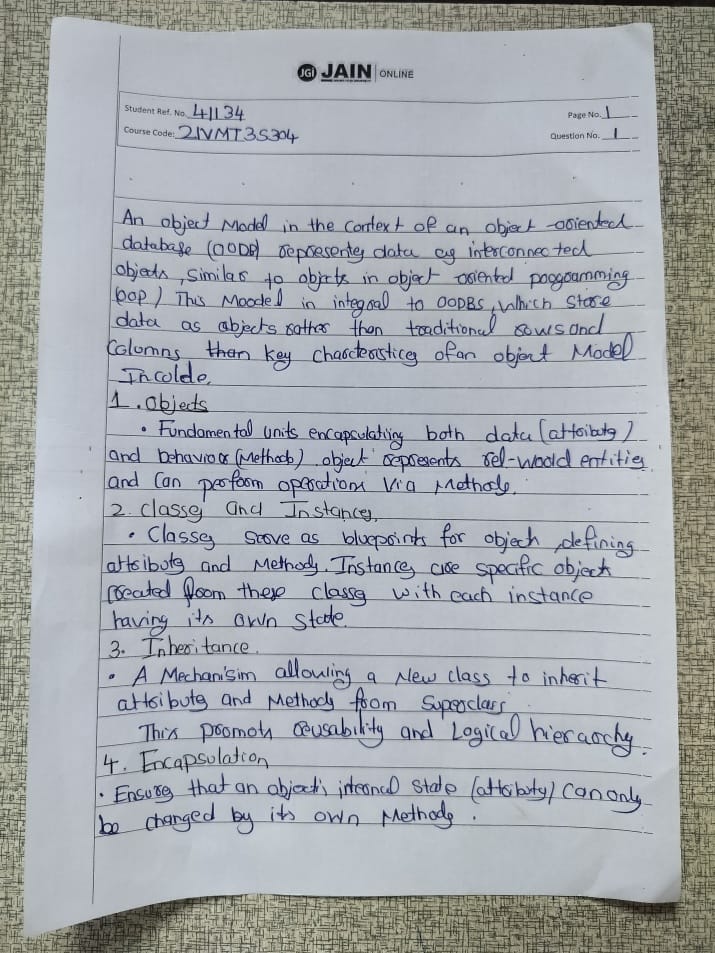 JGI JAIN ONLINE
Student Ref. No. 41134
Page No. 1
Course Code: 21VMT3S304
Question No. 1
An object Model in the context of an object-oriented
database (OODB) representes data as interconnected
objects, similar to objects in object oriented programming
(oop) This Moodel in integral to OODBS, which store
data as objects rather then traditional rows and
Columns then key charcteristices of an object Model
Incolde.
1. Objects
• Fundamental units encapsulating both data (attributes)
and behavior (Methods). object represents rel-woorld entities
and can perform operations Via Methods.
2. Classes and Instances.
• Classes serve as blueprints for objects, defining
attributes and Methods. Instances are specific object
created from these classes with each instance
having its own state.
3. Inheritance.
• A Mechanisim allowing a New class to inherit
attributes and Methods from Superclass.
This promots reusability and Logical hierarchy.
4. Encapsulation
• Ensures that an object's internal state (attributes) can only
be changed by its own Methods.